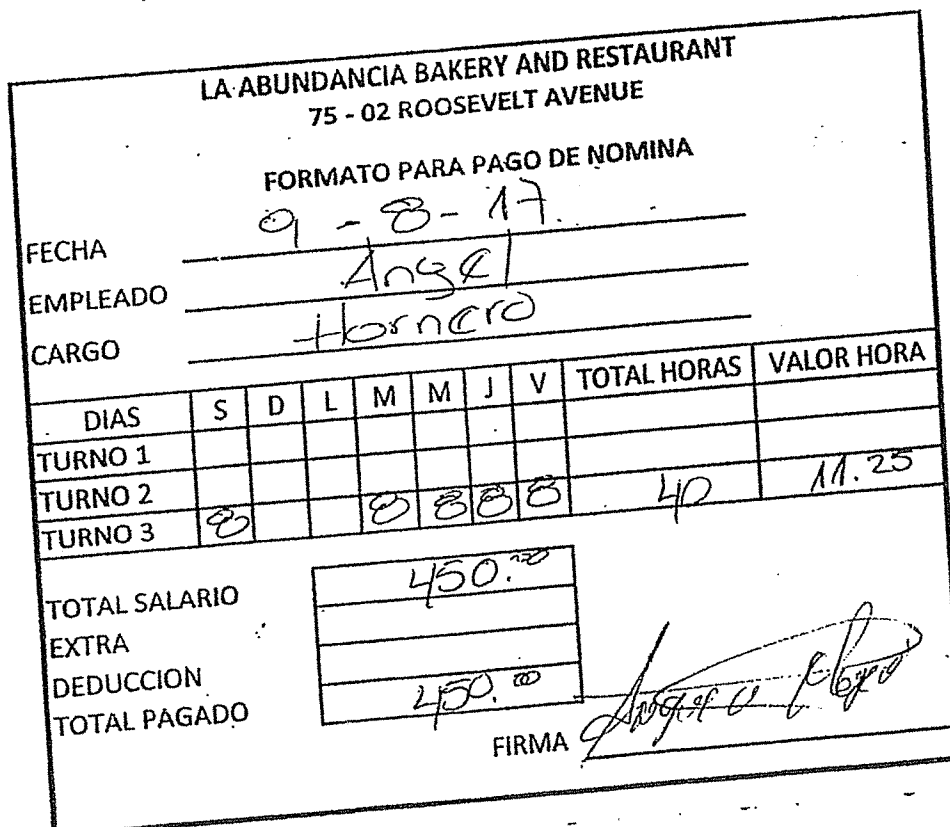 LA ABUNDANCIA BAKERY AND RESTAURANT
75 - 02 ROOSEVELT AVENUE
FORMATO PARA PAGO DE NOMINA
FECHA 9 - 8 - 17.
EMPLEADO Angel
CARGO Hornero
DIAS S D L M M J V TOTAL HORAS VALOR HORA
TURNO 1
TURNO 2
TURNO 3 8 8 8 8 8 40 11.25
TOTAL SALARIO 450.00
EXTRA
DEDUCCION
TOTAL PAGADO 450.00
FIRMA